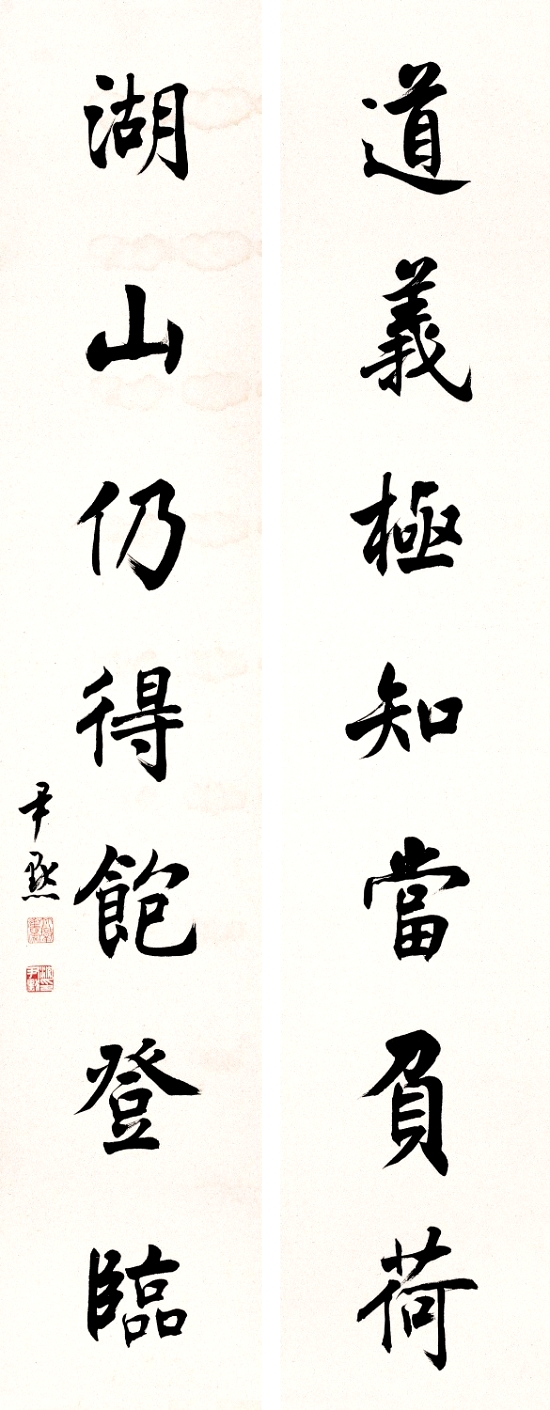 道義極知當負荷
湖山仍得飽登臨
尹默